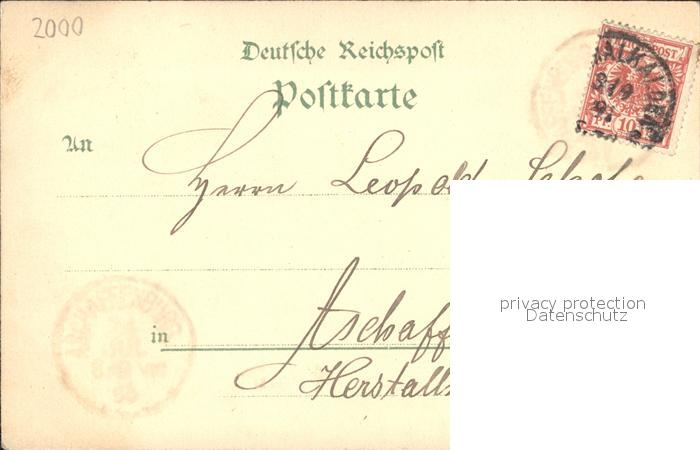 2000
Deutsche Reichspost
Postkarte
An
Herrn Leopold
in Aschaff
Herstall
privacy protection
Datenschutz
10